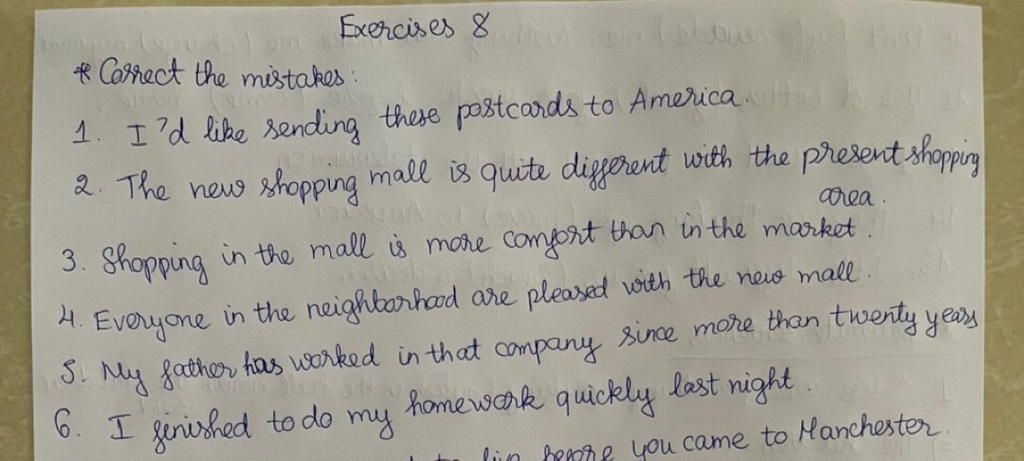 Exercises 8
* Correct the mistakes:
1. I'd like sending these postcards to America.
2. The new shopping mall is quite different with the present shopping
area.
3. Shopping in the mall is more comfort than in the market.
4. Everyone in the neighborhood are pleased with the new mall.
5. My father has worked in that company since more than twenty years
6. I finished to do my homework quickly last night.
before you came to Manchester.